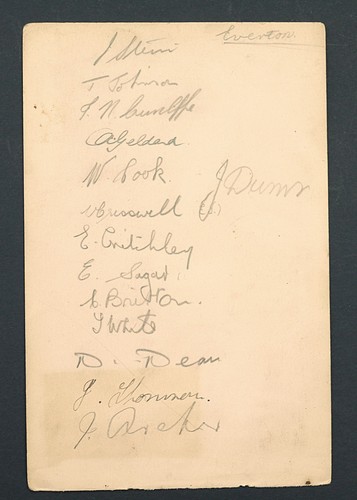 Everton
J Stein
T Johnson
J. N. Cunliffe
A Geldard
W. Cook.
J Dunn
W Cresswell
E. Critchley
E. Sagar.
C Britton.
T White
D. Dean
J. Thomson.
J. Archer